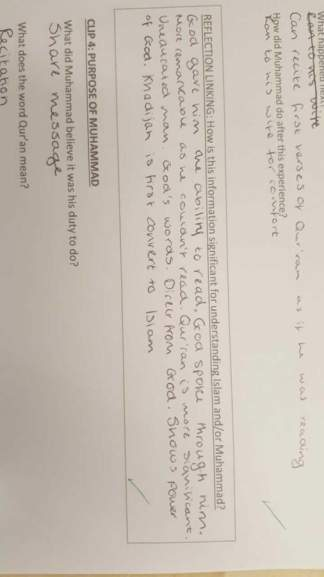 What happened next?
Ran to his wife
Can recite first verses of Qur'ran as if he was reading
How did Muhammad do after this experience?
Ran to his wife for comfort
REFLECTION LINKING: How is this information significant for understanding Islam and/or Muhammad?
God gave him the ability to read. God spoke through him.
More remarkable as he couldn't read. Qur'ran is more significant.
Uneducated man God's words. Direct from God. Shows power
of God. Khadijah is first convert to Islam
CLIP 4: PURPOSE OF MUHAMMAD
What did Muhammad believe it was his duty to do?
Share message
What does the word Qur'an mean?
Recitation